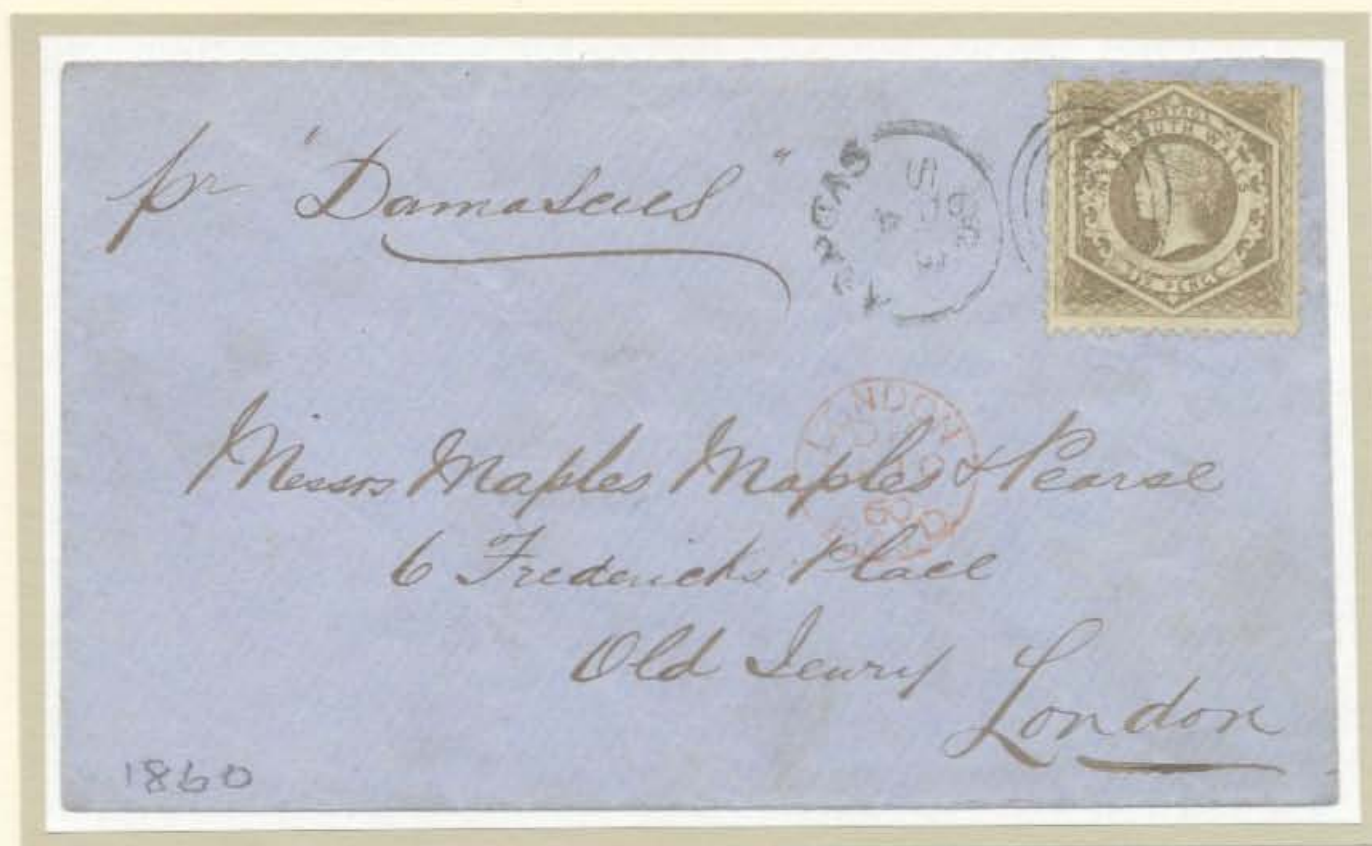 pr "Damascus"
POSTAGE
NEW SOUTH WALES
SIX PENCE
LONDON
60
PAID
Messrs Maples Maples & Pearse
6 Fredericks Place
Old Jewry
London
1860